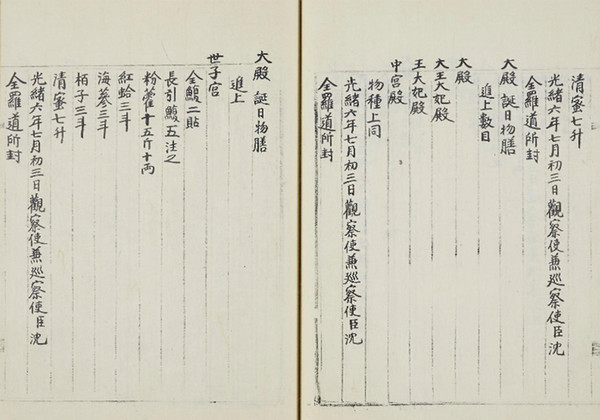 清蜜七升
光緒六年七月初三日觀察使兼巡察使臣沈
全羅道所封
大殿 誕日物膳
進上數目
大殿
大王大妃殿
王大妃殿
中宮殿
物種上同
光緒六年七月初三日觀察使兼巡察使臣沈
全羅道所封
大殿 誕日物膳
進上
世子宮
全鰒二貼
長引鰒五注之
粉藿十五斤十兩
紅蛤三斗
海蔘三斗
栢子三斗
清蜜七升
光緒六年七月初三日觀察使兼巡察使臣沈
全羅道所封